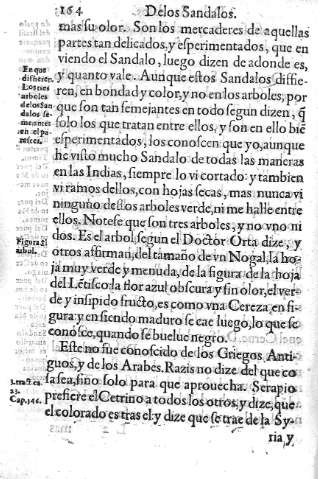 164 De los Sandalos.
mas su olor. Son los mercaderes de aquellas
partes tan delicados, y esperimentados, que en
viendo el Sandalo, luego dizen de adonde es,
y quanto vale. Aunque estos Sandalos diffie-
ren, en bondad y color, y no en los arboles, por
que son tan semejantes en todo segun dizen, q̃
solo los que tratan entre ellos, y son en ello biẽ
esperimentados, los conoscen que yo, aunque
he visto mucho Sandalo de todas las maneras
en las Indias, siempre lo vi cortado: y tambien
vi ramos dellos, con hojas secas, mas nunca vi
ninguno destos arboles verde, ni me halle entre
ellos. Notese que son tres arboles, y no vno ni
dos. Es el arbol segun el Doctor Orta dize, y
otros affirman, del tamaño de vn Nogal, la ho-
ja muy verde y menuda, de la figura de la hoja
del Lẽtisco: la flor azul obscura y sin olor, el ver-
de y insipido fructo, es como vna Cereza en fi-
gura: y en siendo maduro se cae luego, lo que se
conosce, quando se buelue negro.
Este no fue conoscido de los Griegos Anti-
guos, y de los Arabes. Razis no dize del que co
sa sea, sino solo para que aprouecha. Serapio
prefiere el Cetrino a todos los otros, y dize, que
el colorado es tras el: y dize que se trae de la Sy-
ria, y
En que
differen
los tres
arboles
de los San
dalos se-
menores
en el pa-
rescer.
Figura ãl
arbol.
23.
Cap. 346.